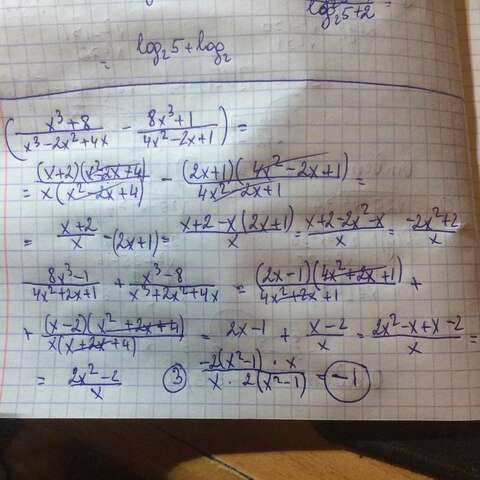 log₂5+2 =
= log₂5 + log₂
((x³+8)/(x³-2x²+4x) - (8x³+1)/(4x²-2x+1)) =
= (x+2)(x²-2x+4)/x(x²-2x+4) - (2x+1)(4x²-2x+1)/4x²-2x+1 =
= (x+2)/x - (2x+1) = (x+2-x(2x+1))/x = (x+2-2x²-x)/x = (-2x²+2)/x
(8x³-1)/(4x²+2x+1) + (x³-8)/(x³+2x²+4x) = (2x-1)(4x²+2x+1)/4x²+2x+1 +
+ (x-2)(x²+2x+4)/x(x+2x+4) = 2x-1 + (x-2)/x = (2x²-x+x-2)/x =
= (2x²-2)/x ③ (-2(x²-1)·x)/(x·2(x²-1)) = -1